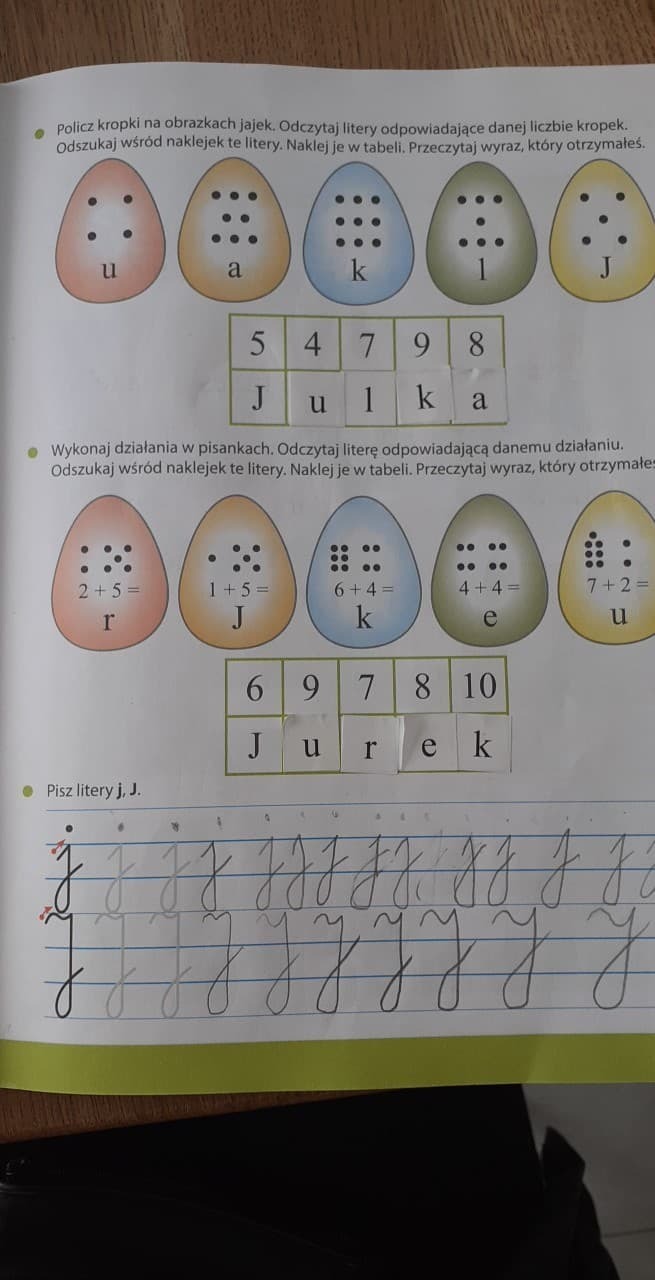 Policz kropki na obrazkach jajek. Odczytaj litery odpowiadające danej liczbie kropek.
Odszukaj wśród naklejek te litery. Naklej je w tabeli. Przeczytaj wyraz, który otrzymałeś.
u a k l J
5 4 7 9 8
J u l k a
Wykonaj działania w pisankach. Odczytaj literę odpowiadającą danemu działaniu.
Odszukaj wśród naklejek te litery. Naklej je w tabeli. Przeczytaj wyraz, który otrzymałeś
2 + 5 = 1 + 5 = 6 + 4 = 4 + 4 = 7 + 2 =
r J k e u
6 9 7 8 10
J u r e k
Pisz litery j, J.
j j j j j j j j j j j j j
J J J J J J J J J J